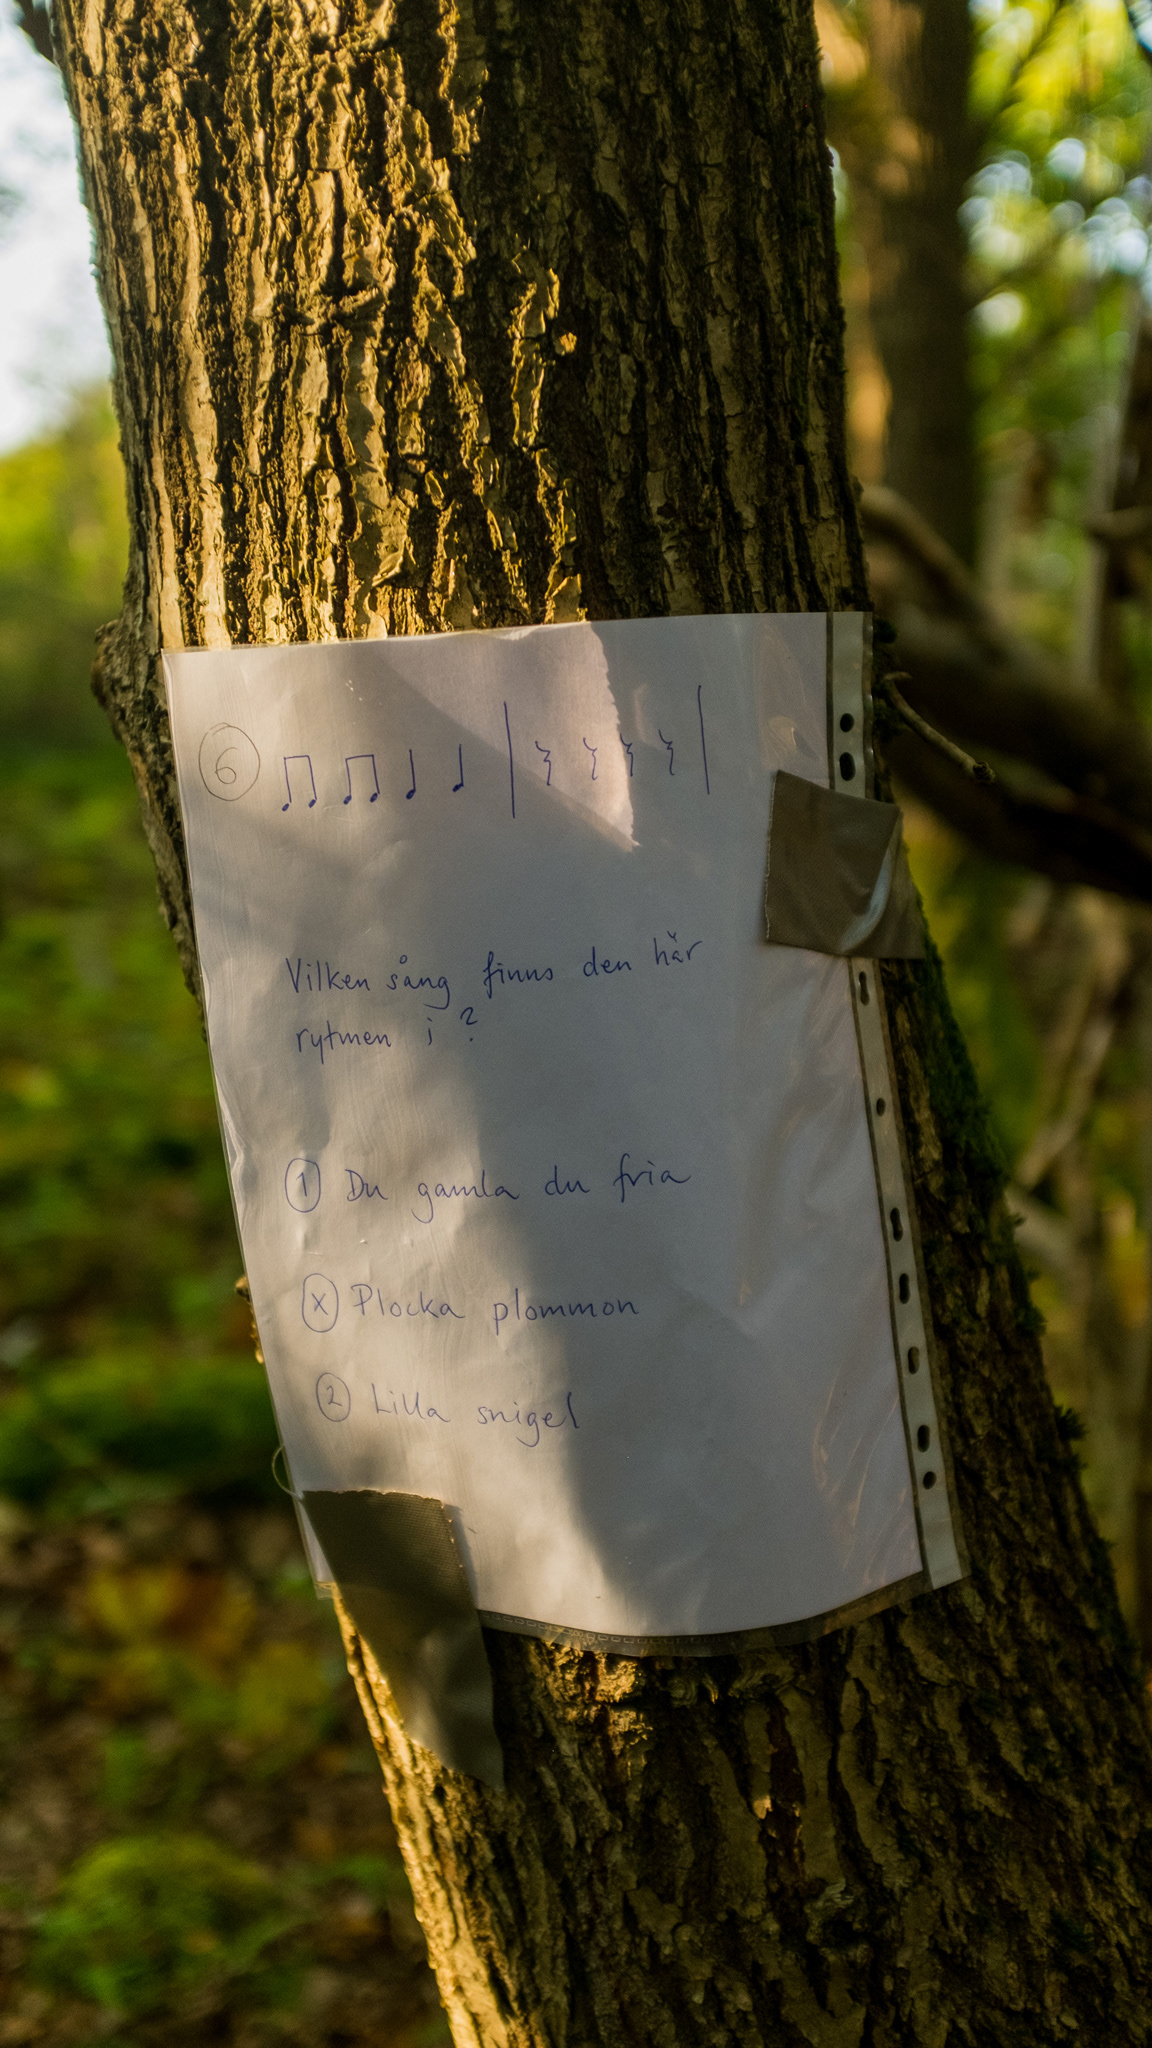 6
Vilken sång finns den här
rytmen i ?
1 Du gamla du fria
X Plocka plommon
2 Lilla snigel